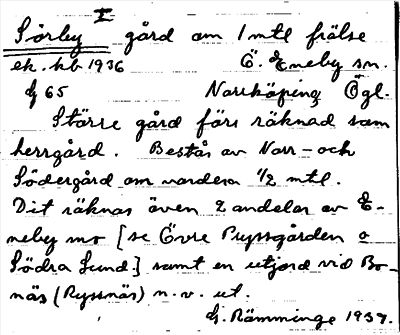 I
Sörby gård om 1 mtl frälse
ek. kb 1936 Ö. Eneby sn.
G 65 Norrköping Ögl.
Större gård förr räknad som
herrgård. Består av Norr- och
Södergård om vardera 1/2 mtl.
Dit räknas även 2 andelar av E-
neby mo [se Övre Pryssgården o
Södra Lund] samt en utjord vid Bo-
näs (Ryssnäs) n.v. ut.
G. Rämminge 1937.